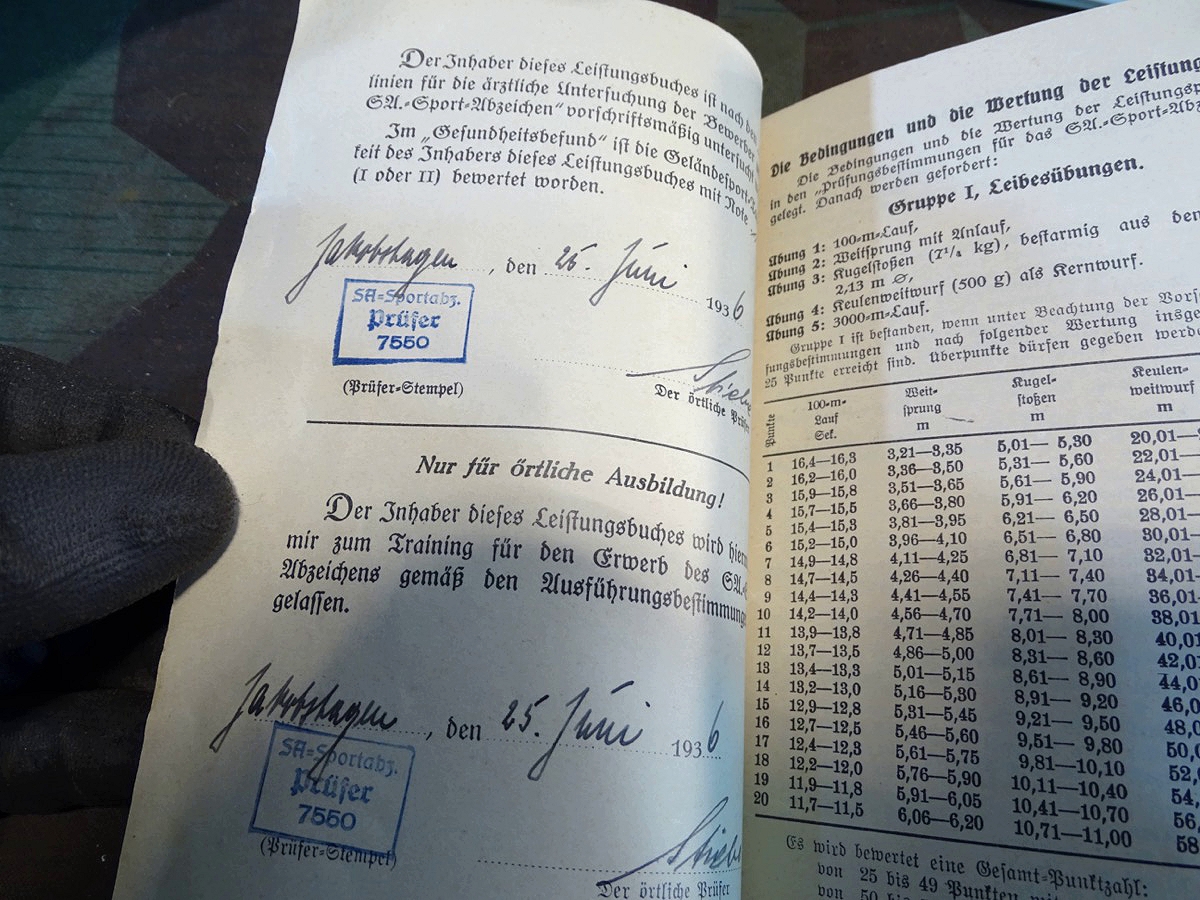 Der Inhaber dieses Leistungsbuches ist nach den
linien für die ärztliche Untersuchung der Bewerber
SA.-Sport-Abzeichen" vorschriftsmäßig untersucht
Im „Gesundheitsbefund" ist die Geländesport-
keit des Inhabers dieses Leistungsbuches mit Note
(I oder II) bewertet worden.
Jakobshagen, den 25. Juni 1936
SA-Sportabz.
Prüfer
7550
(Prüfer-Stempel)
Der örtliche Prüfer
Nur für örtliche Ausbildung!
Der Inhaber dieses Leistungsbuches wird hierm
mir zum Training für den Erwerb des SA.-
Abzeichens gemäß den Ausführungsbestimmung
gelassen.
Jakobshagen, den 25. Juni 1936
SA-Sportabz.
Prüfer
7550
(Prüfer-Stempel)
Der örtliche Prüfer
Die Bedingungen und die Wertung der Leistung
Die Bedingungen und die Wertung der Leistungsp
in den „Prüfungsbestimmungen für das SA.-Sport-Abz
gelegt. Danach werden gefordert:
Gruppe I, Leibesübungen.
Übung 1: 100-m-Lauf,
Übung 2: Weitsprung mit Anlauf,
Übung 3: Kugelstoßen (7¼ kg), bestarmig aus dem
2,13 m ⌀,
Übung 4: Keulenweitwurf (500 g) als Kernwurf.
Übung 5: 3000-m-Lauf.
Gruppe I ist bestanden, wenn unter Beachtung der Vors
fungsbestimmungen und nach folgender Wertung insge
25 Punkte erreicht sind. Überpunkte dürfen gegeben werde
Punkte 100-m-Lauf Sek. Weitsprung m Kugelstoßen m Keulenweitwurf m
1 16,4—16,3 3,21—3,35 5,01— 5,30 20,01—
2 16,2—16,0 3,36—3,50 5,31— 5,60 22,01—
3 15,9—15,8 3,51—3,65 5,61— 5,90 24,01—
4 15,7—15,5 3,66—3,80 5,91— 6,20 26,01—
5 15,4—15,3 3,81—3,95 6,21— 6,50 28,01—
6 15,2—15,0 3,96—4,10 6,51— 6,80 30,01—
7 14,9—14,8 4,11—4,25 6,81— 7,10 32,01—
8 14,7—14,5 4,26—4,40 7,11— 7,40 34,01—
9 14,4—14,3 4,41—4,55 7,41— 7,70 36,01—
10 14,2—14,0 4,56—4,70 7,71— 8,00 38,01
11 13,9—13,8 4,71—4,85 8,01— 8,30 40,01
12 13,7—13,5 4,86—5,00 8,31— 8,60 42,01
13 13,4—13,3 5,01—5,15 8,61— 8,90 44,01
14 13,2—13,0 5,16—5,30 8,91— 9,20 46,0
15 12,9—12,8 5,31—5,45 9,21— 9,50 48,0
16 12,7—12,5 5,46—5,60 9,51— 9,80 50,0
17 12,4—12,3 5,61—5,75 9,81—10,10 52,
18 12,2—12,0 5,76—5,90 10,11—10,40 54,
19 11,9—11,8 5,91—6,05 10,41—10,70 56,
20 11,7—11,5 6,06—6,20 10,71—11,00 58
Es wird bewertet eine Gesamt-Punktzahl:
von 25 bis 49 Punkten
von 50 bis